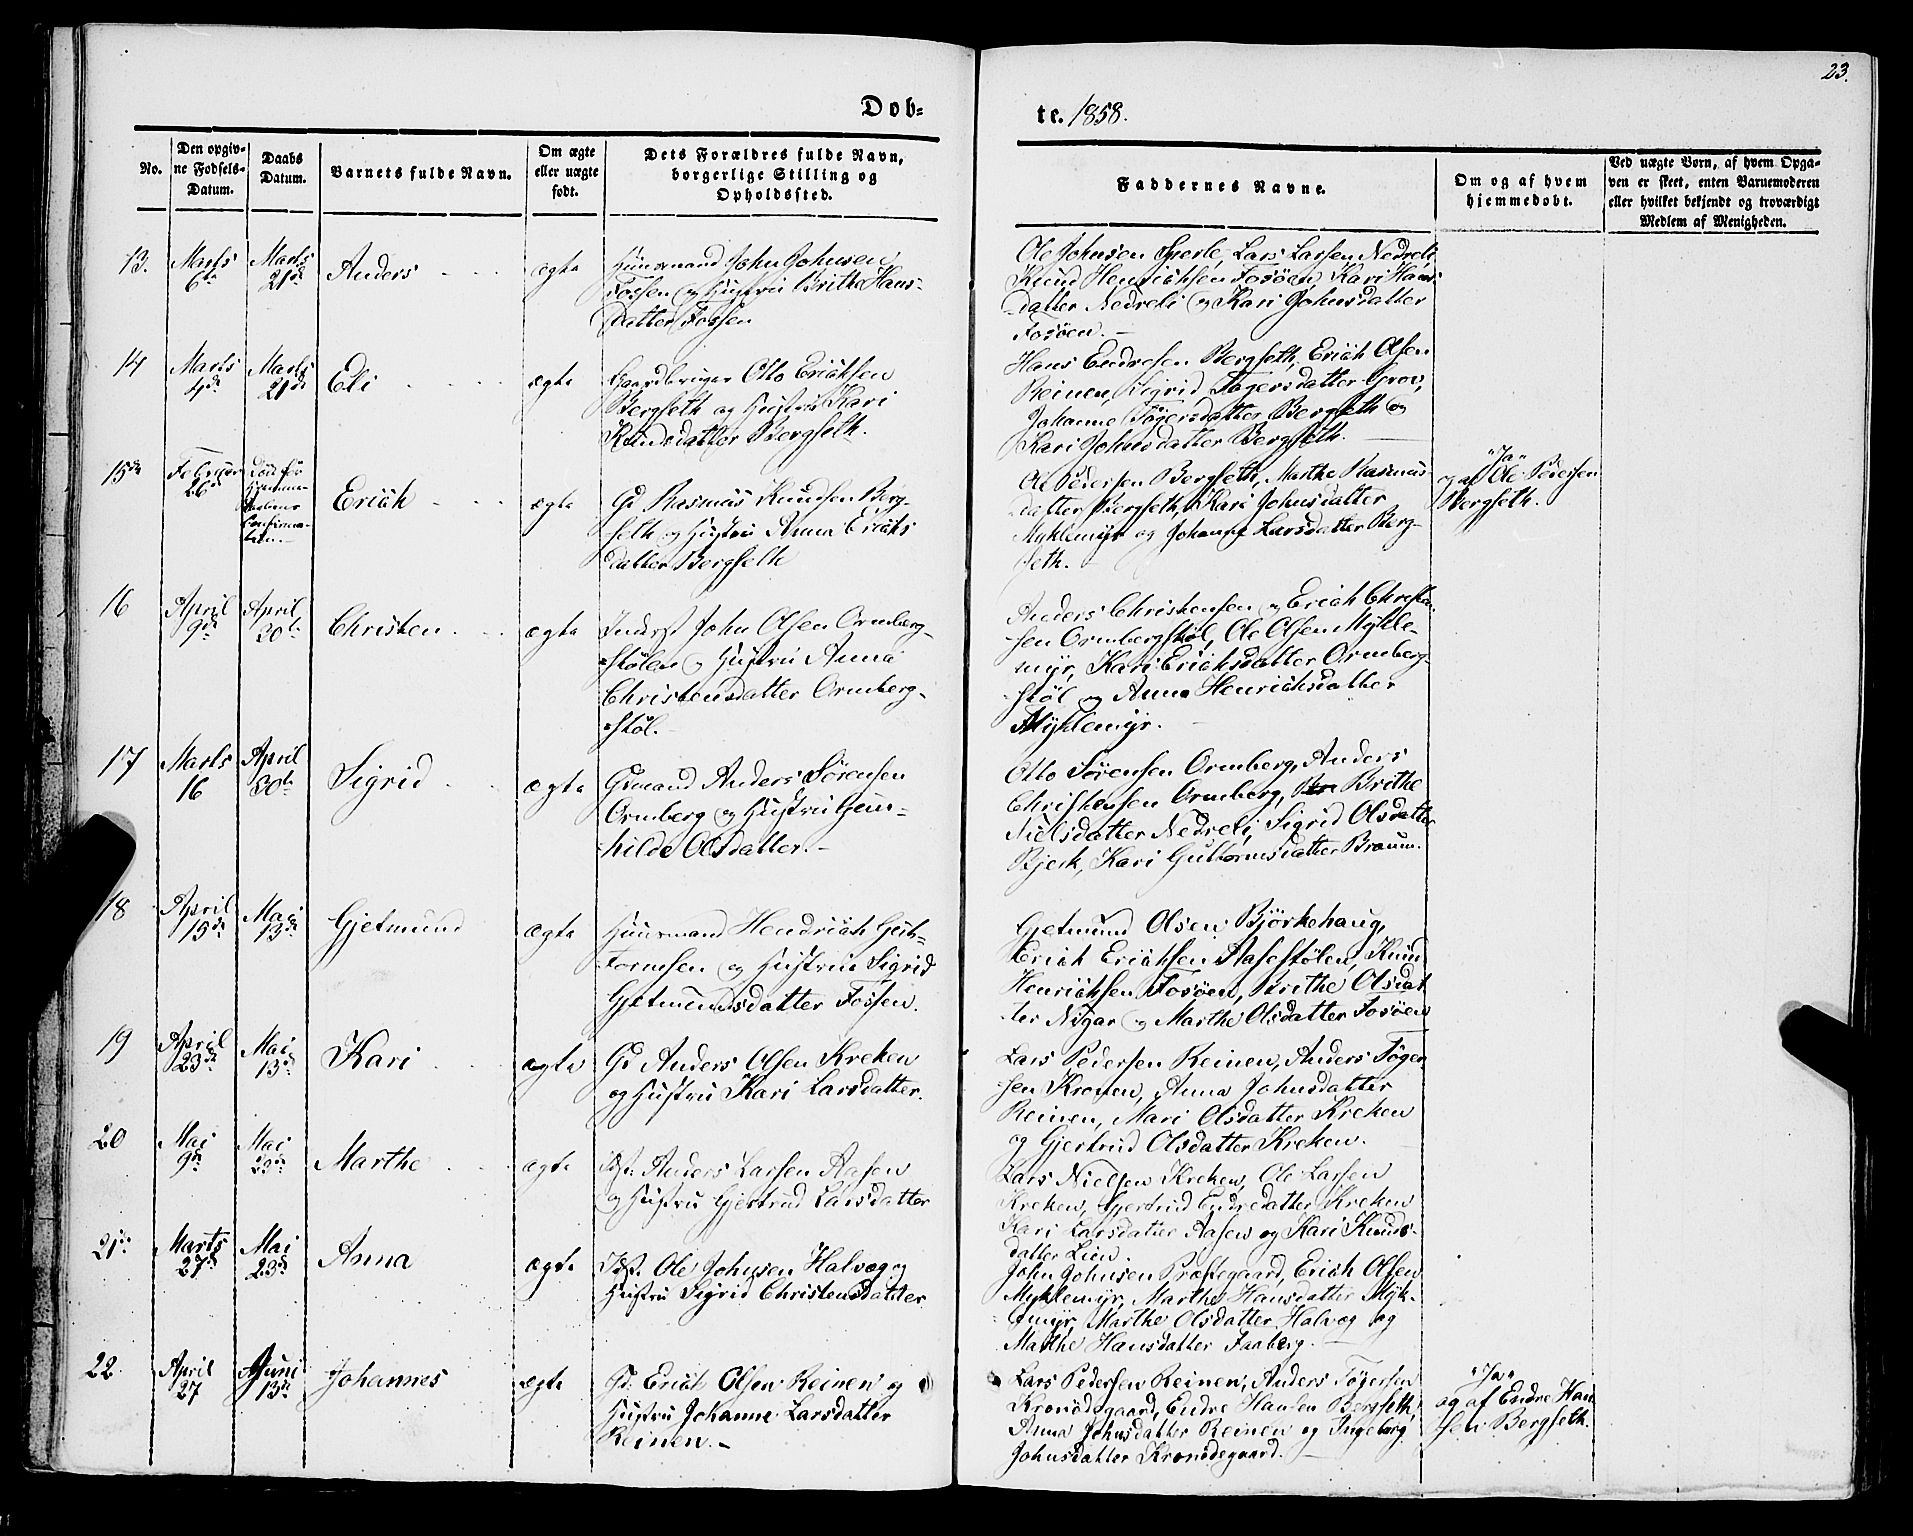 23.
Dob-
te. 1858.
No.
Den opgiv-
ne Fødsels-
Datum.
Daabs
Datum.
Barnets fulde Navn.
Om ægte
eller uægte
født.
Dets Forældres fulde Navn,
borgerlige Stilling og
Opholdssted.
Faddernes Navne.
Om og af hvem
hjemmedøbt.
Ved uægte Børn, af hvem Opga-
ven er skeet, enten Barnemoderen
eller hvilket bekjendt og troværdigt
Medlem af Menigheden.
13.
Marts
6te
Marts
21de
Anders
ægte
Huusmand John Johnsen
Fossen og Hustru Brithe Hans-
datter Fossen
Ole Johnsen Sperle, Lars Larsen Nedreli,
Knud Henrichsen Fosøen, Kari Hans-
datter Nedreli og Kari Johnsdatter
Fosøen.
14
Marts
4de
Marts
21de
Eli
ægte
Gaardbruger Otto Erichsen
Bergseth og Hustru Kari
Knudsdatter Bergseth.
Hans Endresen Bergseth, Erich Olsen
Reinen, Sigrid Tøgersdatter Grov,
Johanne Tøgersdatter Bergseth og
Kari Johnsdatter Bergseth.
15de
Februar
26de
Død før
Hjemme-
daabens
Confirma-
tion.
Erich
ægte
Gd Rasmus Knudsen Berg-
seth og Hustru Anna Erichs
datter Bergseth
Ole Pedersen Bergseth, Marthe Rasmus-
datter Bergseth, Kari Johnsdatter
Myklemyr og Johanne Larsdatter Berg-
seth.
"Ja"
og af Ole Pedersen
Bergseth.
16
April
9de
April
30te
Christen
ægte
Inderst John Olsen Ormberg-
stølen og Hustru Anna
Christensdatter Ormberg-
støl.
Anders Christensen og Erich Christen-
sen Ormbergstøl, Ole Olsen Mykle-
myr, Kari Erichsdatter Ormberg-
støl og Anna Henrichsdatter
Myklemyr.
17
Marts
16
April
30te
Sigrid
ægte
Gmand Anders Sørensen
Ormberg og Hustru Gun-
hilde Olsdatter.
Otto Sørensen Ormberg, Anders
Christensen Ormberg, Brithe
Nielsdatter Nedreli, Sigrid Olsdatter
Bjerk, Kari Guttormsdatter Braum.
18
April
15de
Mai
13de
Gjetmund
ægte
Huusmand Hendrich Gut-
tormsen og Hustrue Sigrid
Gjetmundsdatter Fossen.
Gjetmund Olsen Bjørkehaug,
Erich Erichsen Aasestølen, Knud
Henrichsen Fosøen, Brithe Olsdat
ter Nigar og Marthe Olsdatter Fosøen
19
April
23de
Mai
13de
Kari
ægte
Gd Anders Olsen Kreken
og Hustru Kari Larsdatter.
Lars Pedersen Reinen, Anders Tøger
sen Kronen, Anna Johnsdatter
Reinen, Mari Olsdatter Kreken
og Gjertrud Olsdatter Kreken.
20
Mai
9de
Mai
23de
Marthe
ægte
Idst: Anders Larsen Aasen
og Hustru Gjertrud Larsdatter
Lars Nielsen Kreken, Ole Larsen
Kreken, Gjertrud Endredatter Kreken
Kari Larsdatter Aasen og Kari Knuds-
datter Lien.
21de
Marts
27de
Mai
23de
Anna
ægte
Idst. Ole Johnsen Halvæg og
Hustru Sigrid Christensdatter
John Johnsen Præstegaard, Erich Olsen
Myklemyr, Marthe Hansdatter Myk-
lemyr, Marthe Olsdatter Halvæg og
Marthe Hansdatter Faaberg.
22.
April
27
Juni
13de
Johannes
ægte
Gd: Erich Olsen Reinen og
Hustru Johanne Larsdatter
Reinen.
Lars Pedersen Reinen, Anders Tøgersen
Kronødegaard, Endre Hansen Bergseth,
Anna Johnsdatter Reinen og Ingeborg
Johnsdatter Kronødegaard.
"Ja"
og af Endre Han
sen Bergseth.